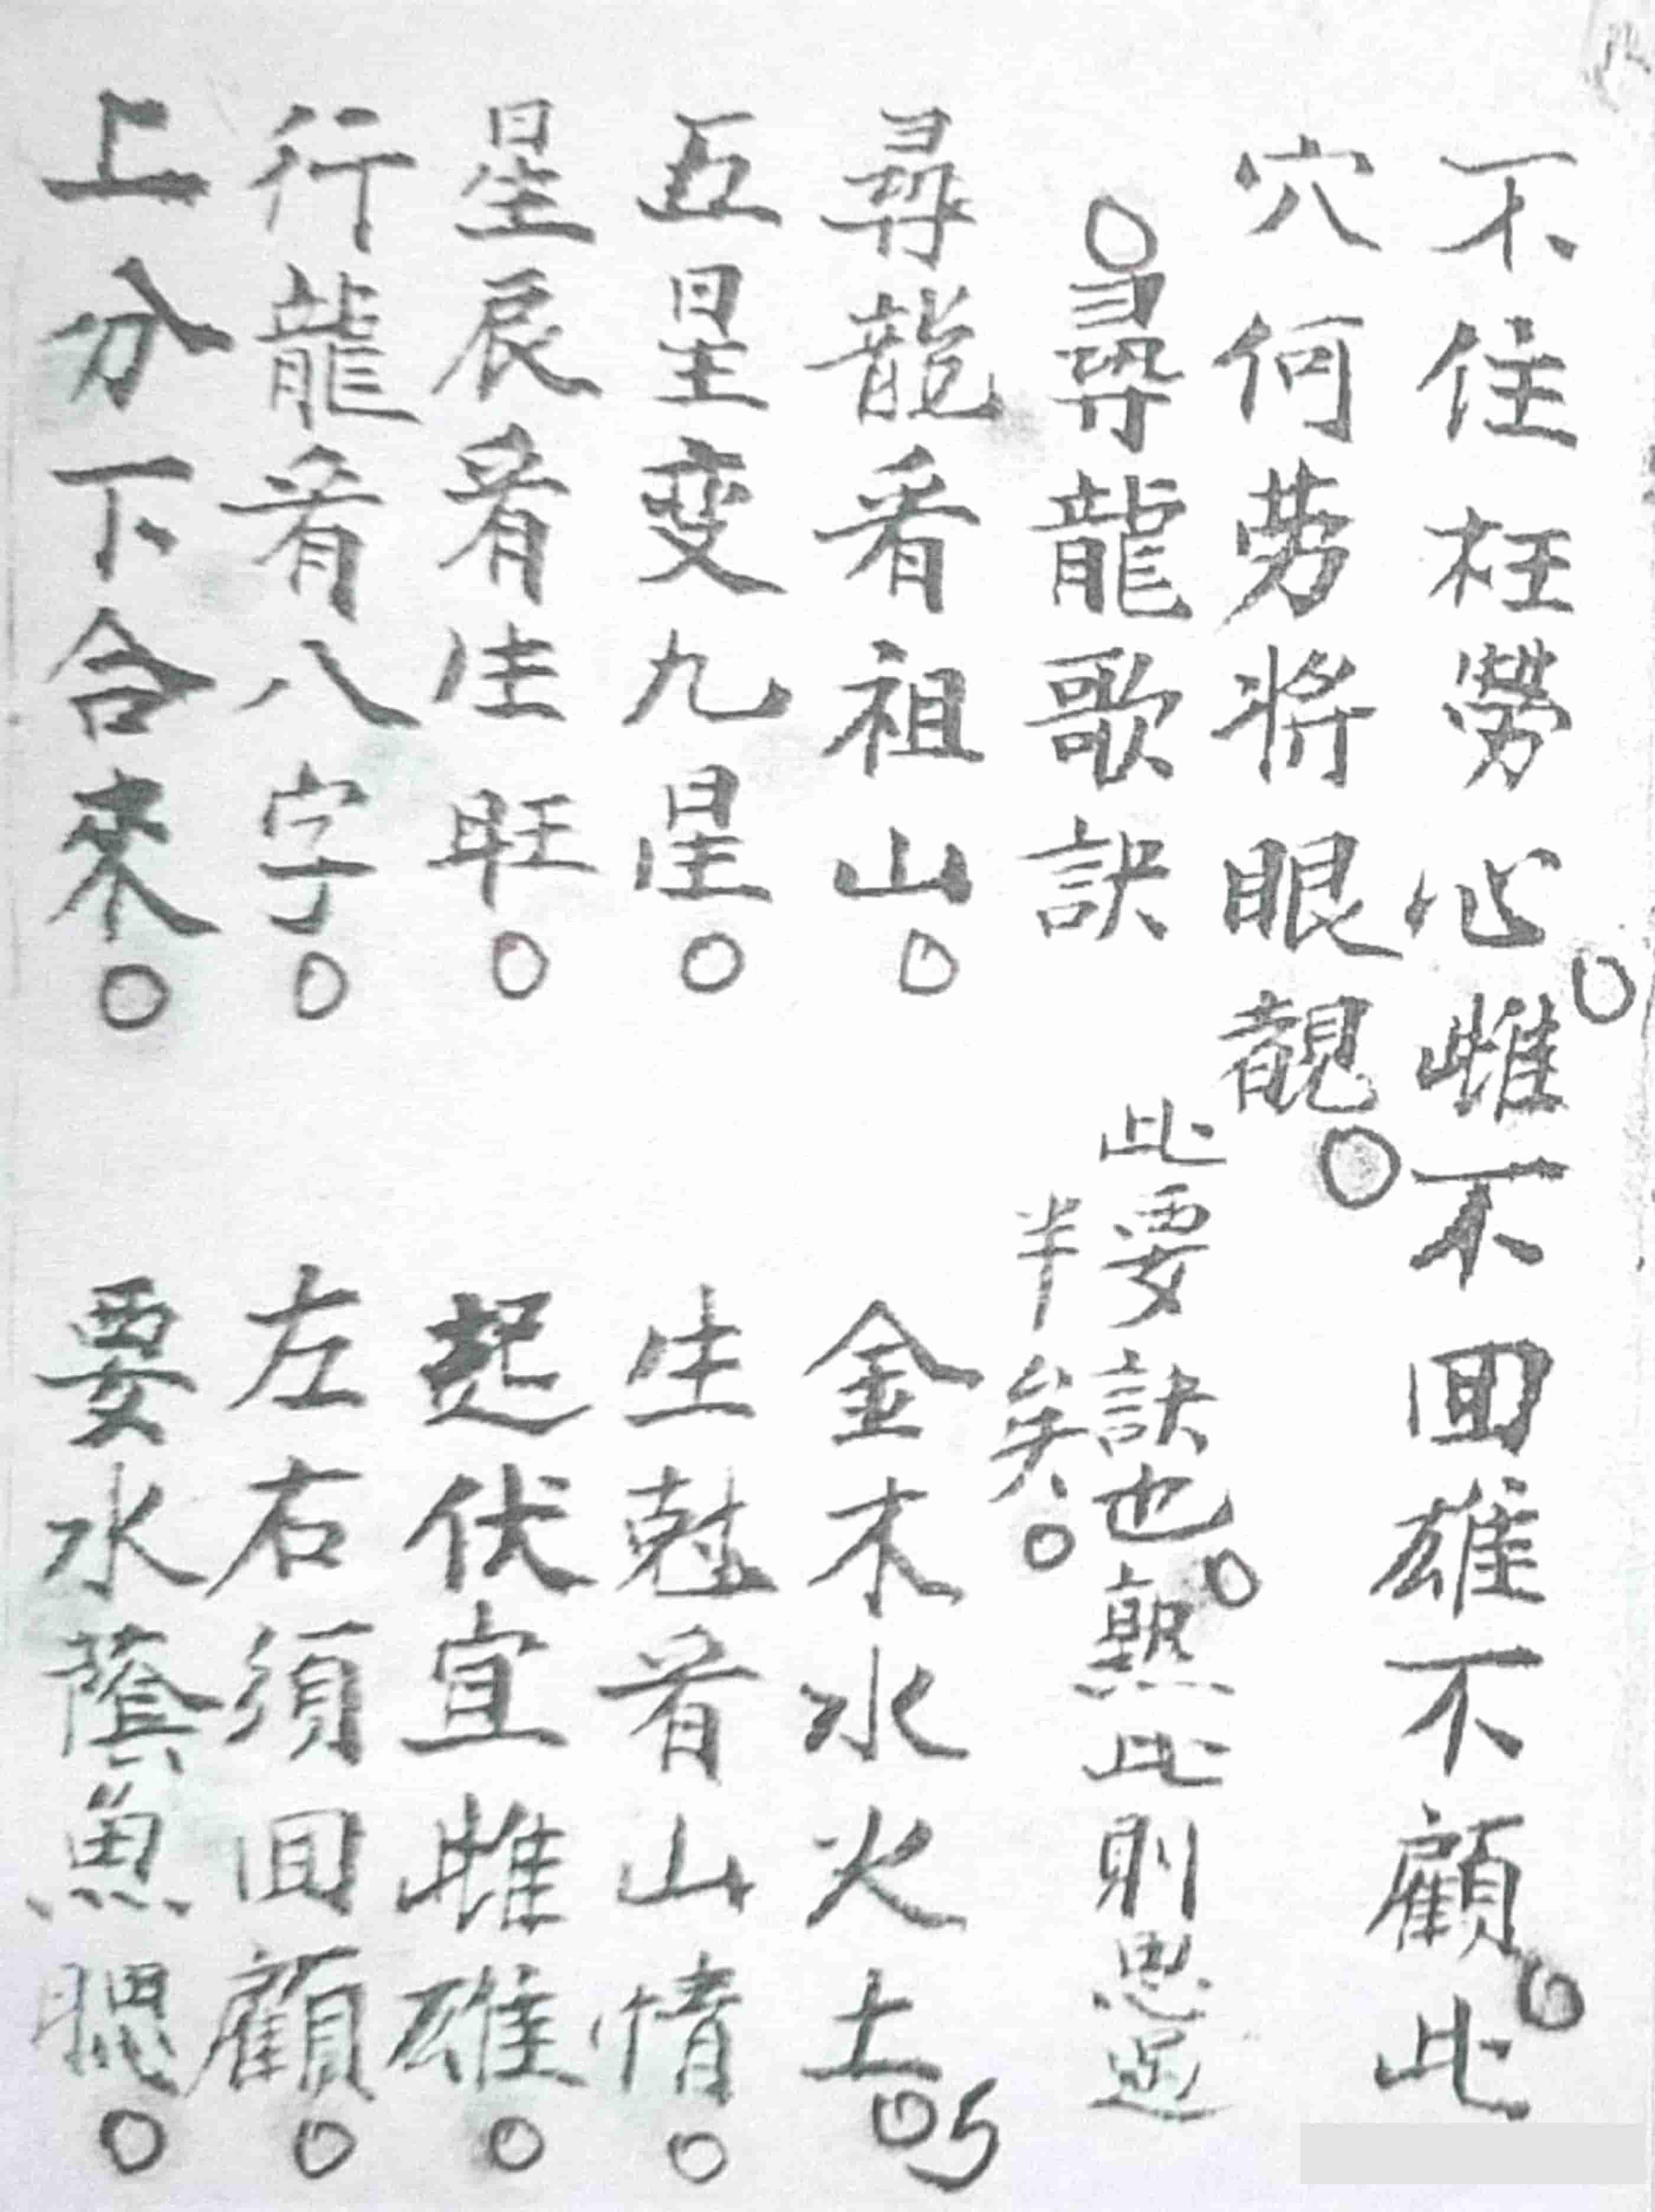 不住枉勞心。雌不回雄不顧。此
穴何劳将眼覩。
○尋龍歌訣
此要訣也。熟此則思過
半矣。
尋龍看祖山。金木水火土。
五星变九星。生尅看山情。
星辰看生旺。起伏宜雌雄。
行龍看八字。左右須回顧。
上分下合來。要水蔭魚腮。